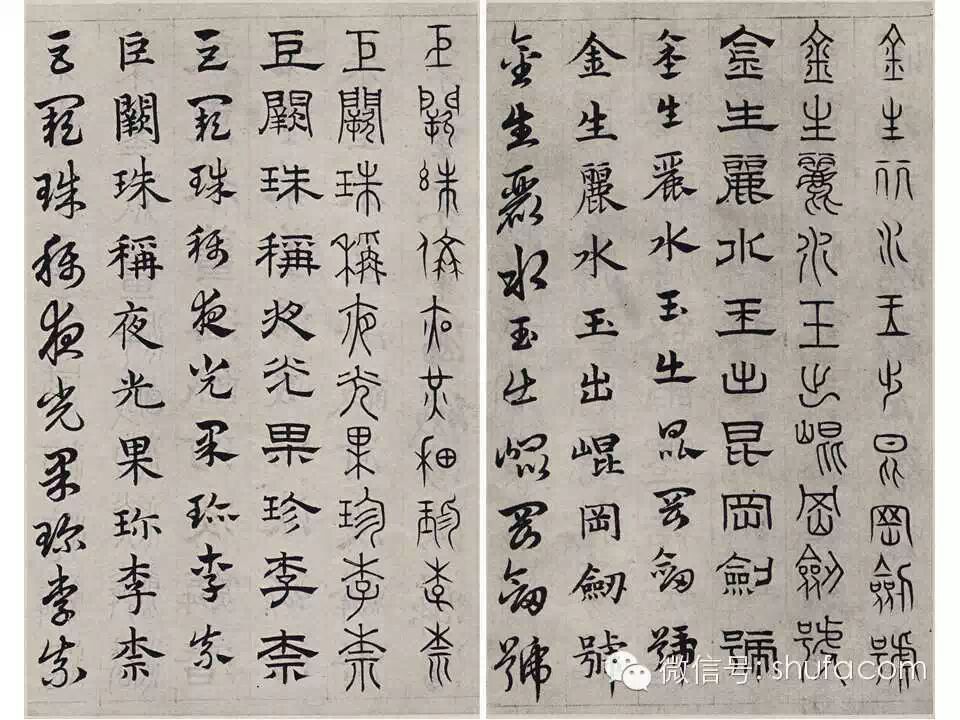 金生麗水玉出昆岡劍號
金生麗水玉出崐岡劍號
金生麗水玉出昆岡劍號
金生麗水玉出昆岡劒號
金生麗水玉出崐岡劒號
金生麗水玉出崐岡劒號
巨闕珠稱夜光果珍李柰
巨闕珠稱夜光果珍李柰
巨闕珠稱夜光果珍李柰
巨闕珠稱夜光果珎李柰
巨闕珠稱夜光果珎李柰
巨闕珠稱夜光果珎李柰
微信号: shufacom